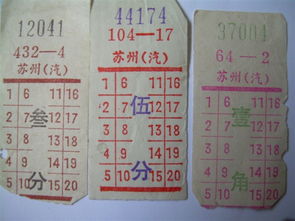 12041
432—4
苏州(汽)
1 6 11 16
2 7 12 17
3 8 13 18
4 9 14 19
5 10 15 20
叁分
44174
104—17
苏州(汽)
1 6 11 16
2 7 12 17
3 8 13 18
4 9 14 19
5 10 15 20
伍分
37004
64—2
苏州(汽)
1 6 11 16
2 7 12 17
3 8 13 18
4 9 14 19
5 10 15 20
壹角